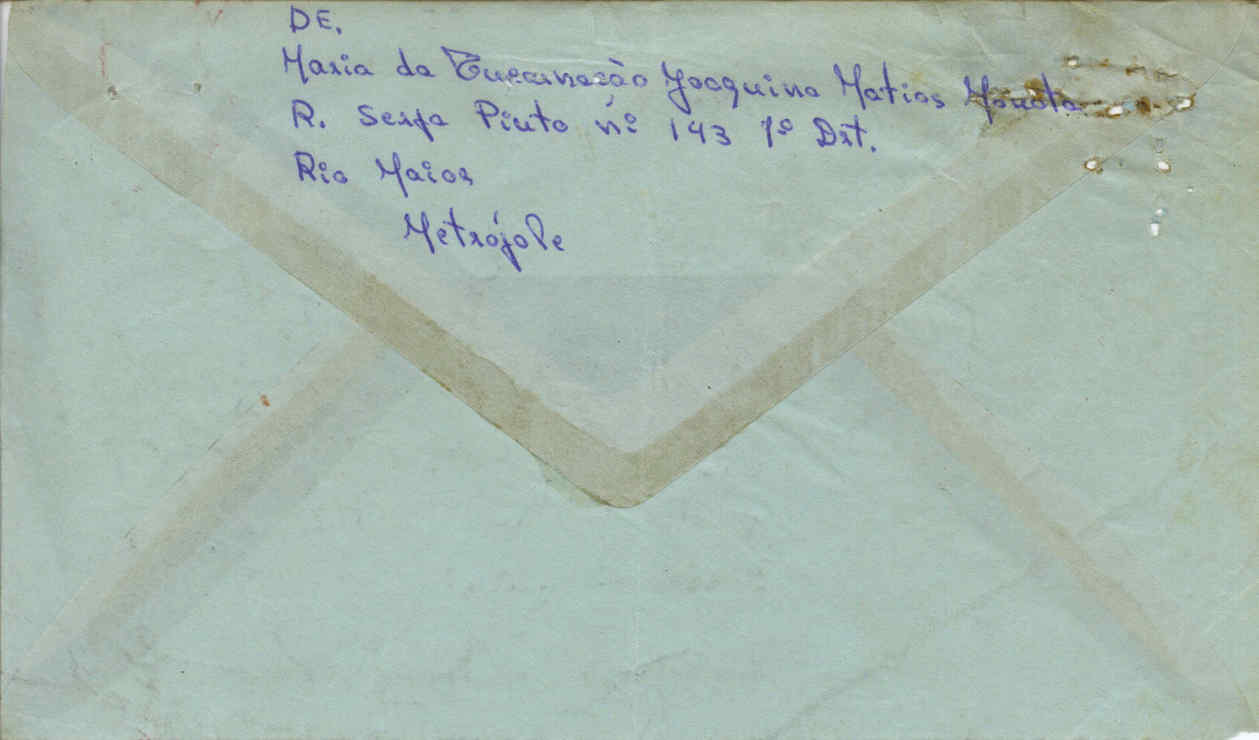 DE.
Maria da Encarnação Joaquina Matias
R. Serpa Pinto nº 143 1º Drt.
Rio Maior
Metrópole